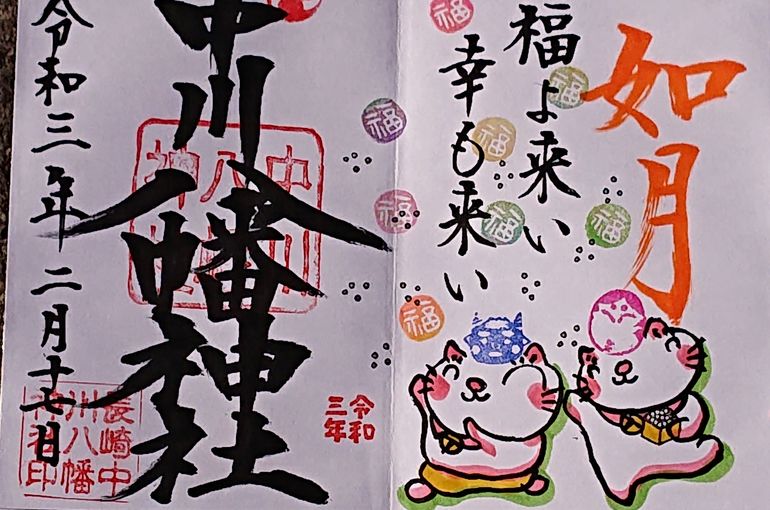 如月
福よ来い
幸も来い
福
福
福
福
福
福
福
福
中川八幡神社
中川
八幡
神社
令和三年二月十七日
令和
三年
長崎中
川八幡
神社印